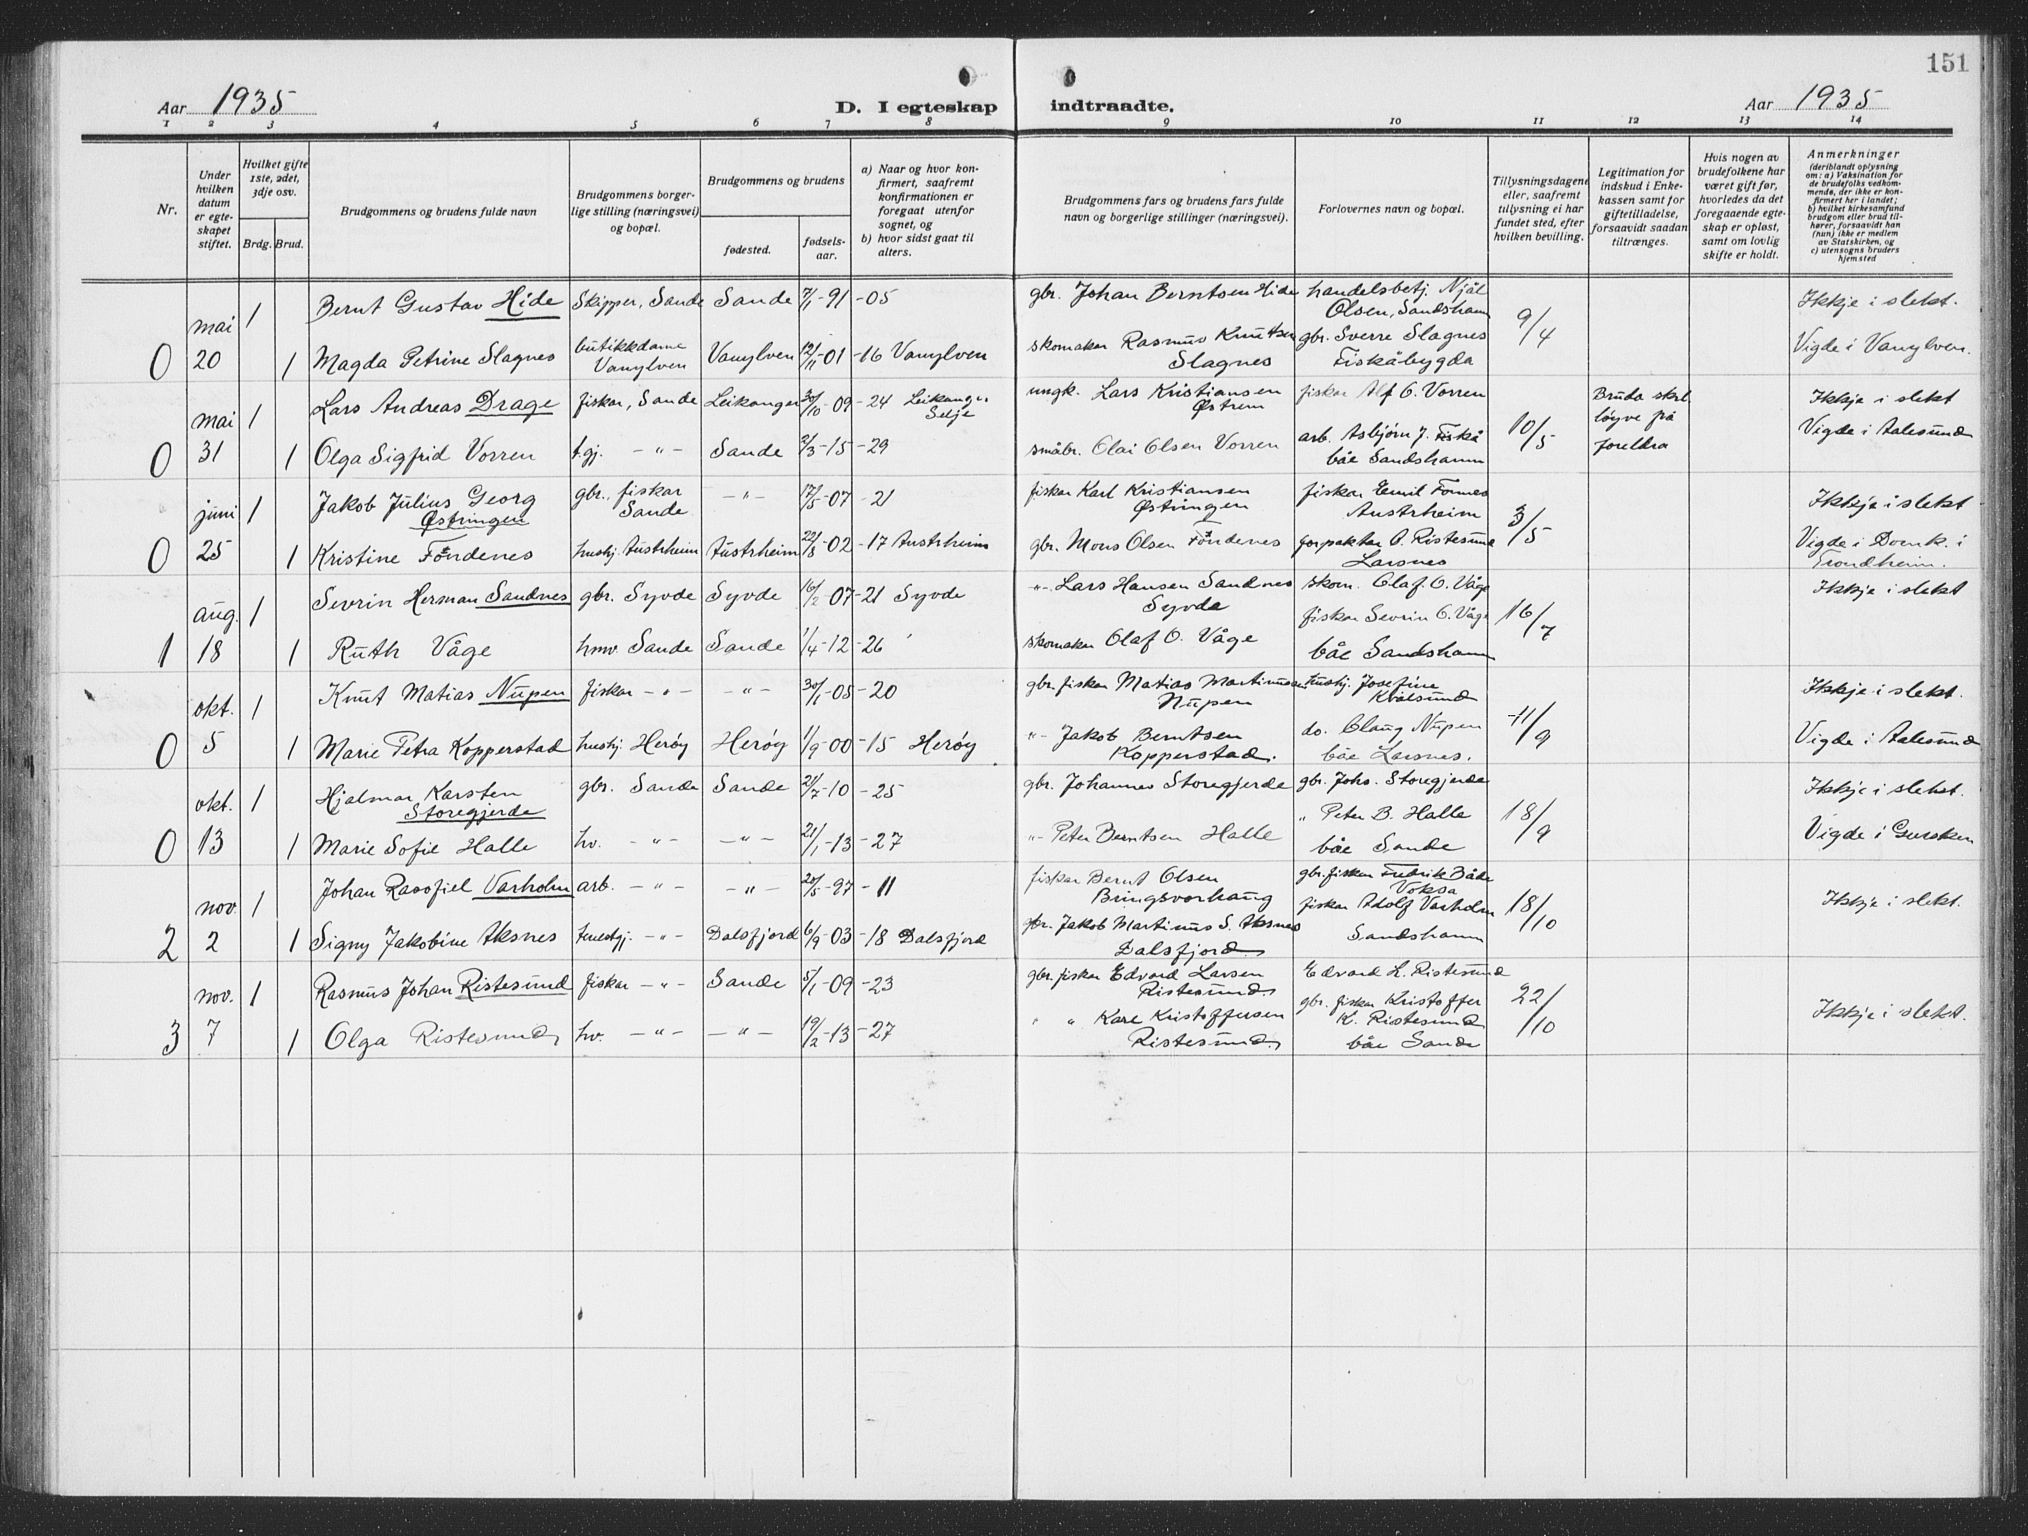 151
Aar 1935 D. I egteskap indtraadte. Aar 1935
1 2 3 4 5 6 7 8 9 10 11 12 13 14
Nr.
Under hvilken datum er egteskapet stiftet.
Hvilket gifte 1ste, 2det, 3dje osv.
Brdg. Brud.
Brudgommens og brudens fulde navn
Brudgommens borgerlige stilling (næringsvei) og bopæl.
Brudgommens og brudens
fødested. fødselsaar.
a) Naar og hvor konfirmert, saafremt konfirmationen er foregaat utenfor sognet, og
b) hvor sidst gaat til alters.
Brudgommens fars og brudens fars fulde navn og borgerlige stillinger (næringsvei).
Forlovernes navn og bopæl.
Tillysningsdagene eller, saafremt tillysning ei har fundet sted, efter hvilken bevilling.
Legitimation for indskud i Enkekassen samt for giftetilladelse, forsaavidt saadan tiltrænges.
Hvis nogen av brudefolkene har været gift før, hvorledes da det foregaaende egteskap er opløst, samt om lovlig skifte er holdt.
Anmerkninger
(deriblandt oplysning om: a) Vaksination for de brudefolks vedkommende, der ikke er konfirmert her i landet; b) hvilket kirkesamfund brudgom eller brud tilhører, forsaavidt han (hun) ikke er medlem av Statskirken, og c) utensogns bruders hjemsted
mai 1 Bernt Gustav Hide Skipper, Sande Sande 7/1-91 -05 gbr. Johan Berntsen Hide handelsbetj. Njål Olsen, Sandshamn 9/4 Ikkje i slekt.
0 20 1 Magda Petrine Slagnes butikkdame Vanylven Vanylven 12/11-01 -16 Vanylven skomaker Rasmus Knutsen Slagnes gbr. Sverre Slagnes Fiskåbygda Vigde i Vanylven.
mai 1 Lars Andreas Drage fiskar, Sande Leikanger 30/10-09 -24 Leikanger Selje ungk. Lars Kristiansen Østrem fiskar Alf O. Vorren 10/5 Bruda skrl løyve på foreldra Ikkje i slekt
0 31 1 Olga Sigfrid Vorren t.gj. -"- Sande 2/3-15 -29 småbr. Olai Olsen Vorren arb. Asbjørn J. Fiskå båe Sandshamn Vigde i Aalesund
juni 1 Jakob Julius Georg Østringen gbr., fiskar Sande -"- 17/5-07 -21 fiskar Karl Kristiansen Østringen fiskar Emil Fonnes Austrheim 3/5 Ikkje i slekt
0 25 1 Kristine Fondenes hushj. Austrheim Austrheim 22/8-02 -17 Austrheim gbr. Mons Olsen Fondenes O. Ristesund Larsnes Vigde i Domk. i Trondheim.
aug. 1 Sevrin Herman Sandnes gbr. Syvde Syvde 16/2-07 -21 Syvde -"- Lars Hansen Sandnes Syvde skom. Olaf O. Våge 16/7 Ikkje i slekt
1 18 1 Ruth Våge hmv. Sande Sande 1/4-12 -26 skomaker Olaf O. Våge fiskar Sevrin O. Våge båe Sandshamn
okt. 1 Knut Matias Nupen fiskar -"- -"- 30/1-05 -20 gbr. fiskar Matias Martinusen Nupen hushj. Josefine Kvalsund 11/9 Ikkje i slekt.
0 5 1 Marie Petra Kopperstad hushj. Herøy Herøy 1/9-00 -15 Herøy "- Jakob Berntsen Kopperstad. do. Olaug Nupen båe Larsnes. Vigde i Aalesund
okt. 1 Hjalmar Karsten Storegjerde gbr. Sande Sande 21/7-10 -25 gbr. Johannes Storegjerde gbr. Johs. Storegjerde 18/9 Ikkje i slekt.
0 13 1 Marie Sofie Halle hv. -"- -"- 21/1-13 -27 "- Peter Berntsen Halle " Peter B. Halle båe Sande Vigde i Gursken
nov. 1 Johan Rasofiel Varholm arb. -"- -"- 20/5-97 -11 fiskar Bernt Olsen Bringsvorhaug gbr. fiskar Fredrik Både Voksa 18/10 Ikkje i slekt.
2 2 1 Signy Jakobine Aksnes tenestgj. -"- Dalsfjord 6/9-03 -18 Dalsfjord gbr. Jakob Martinus S. Aksnes Dalsfjord fiskar Adolf Varholm Sandshamn
nov. 1 Rasmus Johan Ristesund fiskar -"- Sande 5/1-09 -23 gbr. fiskar Edvard Larsen Ristesund Edvard L. Ristesund 22/10 Ikkje i slekt.
3 7 1 Olga Ristesund hv. -"- -"- 19/2-13 -27 " " Karl Kristoffersen Ristesund gbr. fiskar Kristoffer K. Ristesund båe Sande